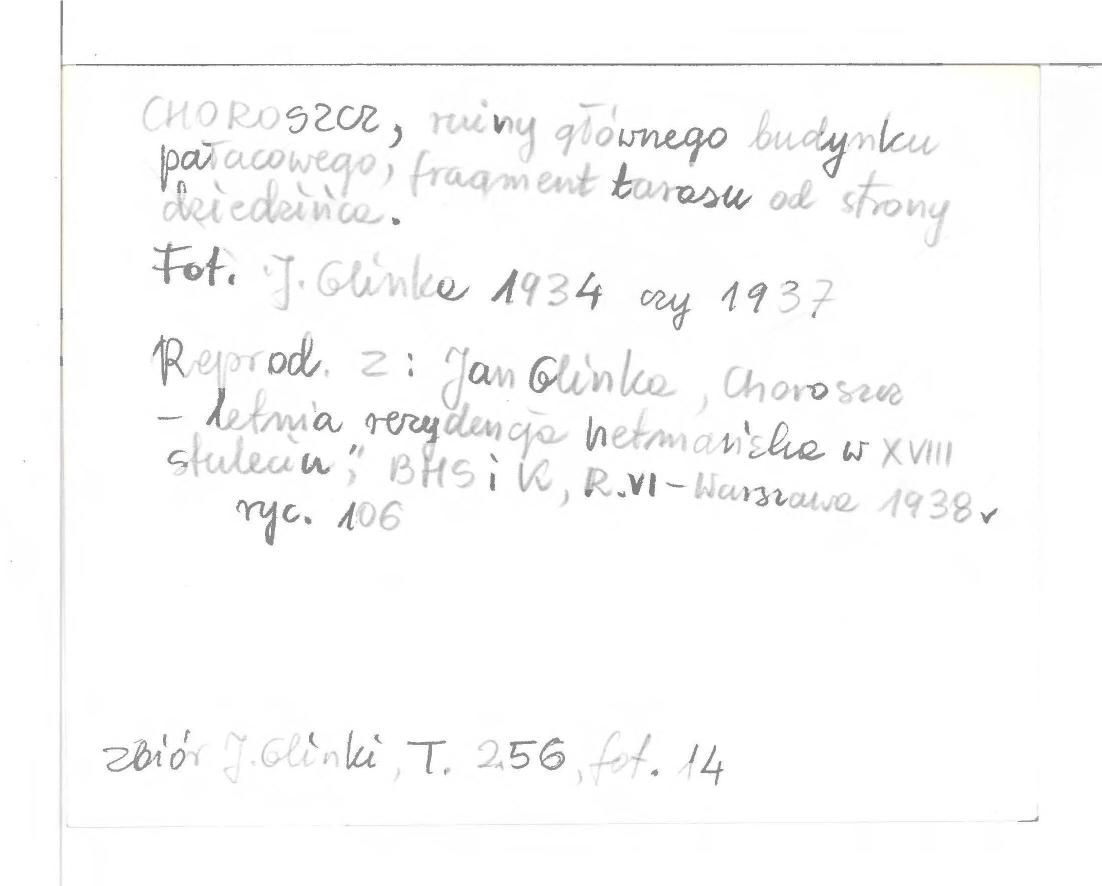 CHOROSZCZ, ruiny głównego budynku
pałacowego, fragment tarasu od strony
dziedzińca.
Fot. J. Glinka 1934 czy 1937
Reprod. z: Jan Glinka, Choroszcz
– letnia rezydencja hetmańska w XVIII
stuleciu", BHS i K, R.VI – Warszawa 1938 r
ryc. 106
zbiór J. Glinki, T. 256, fot. 14